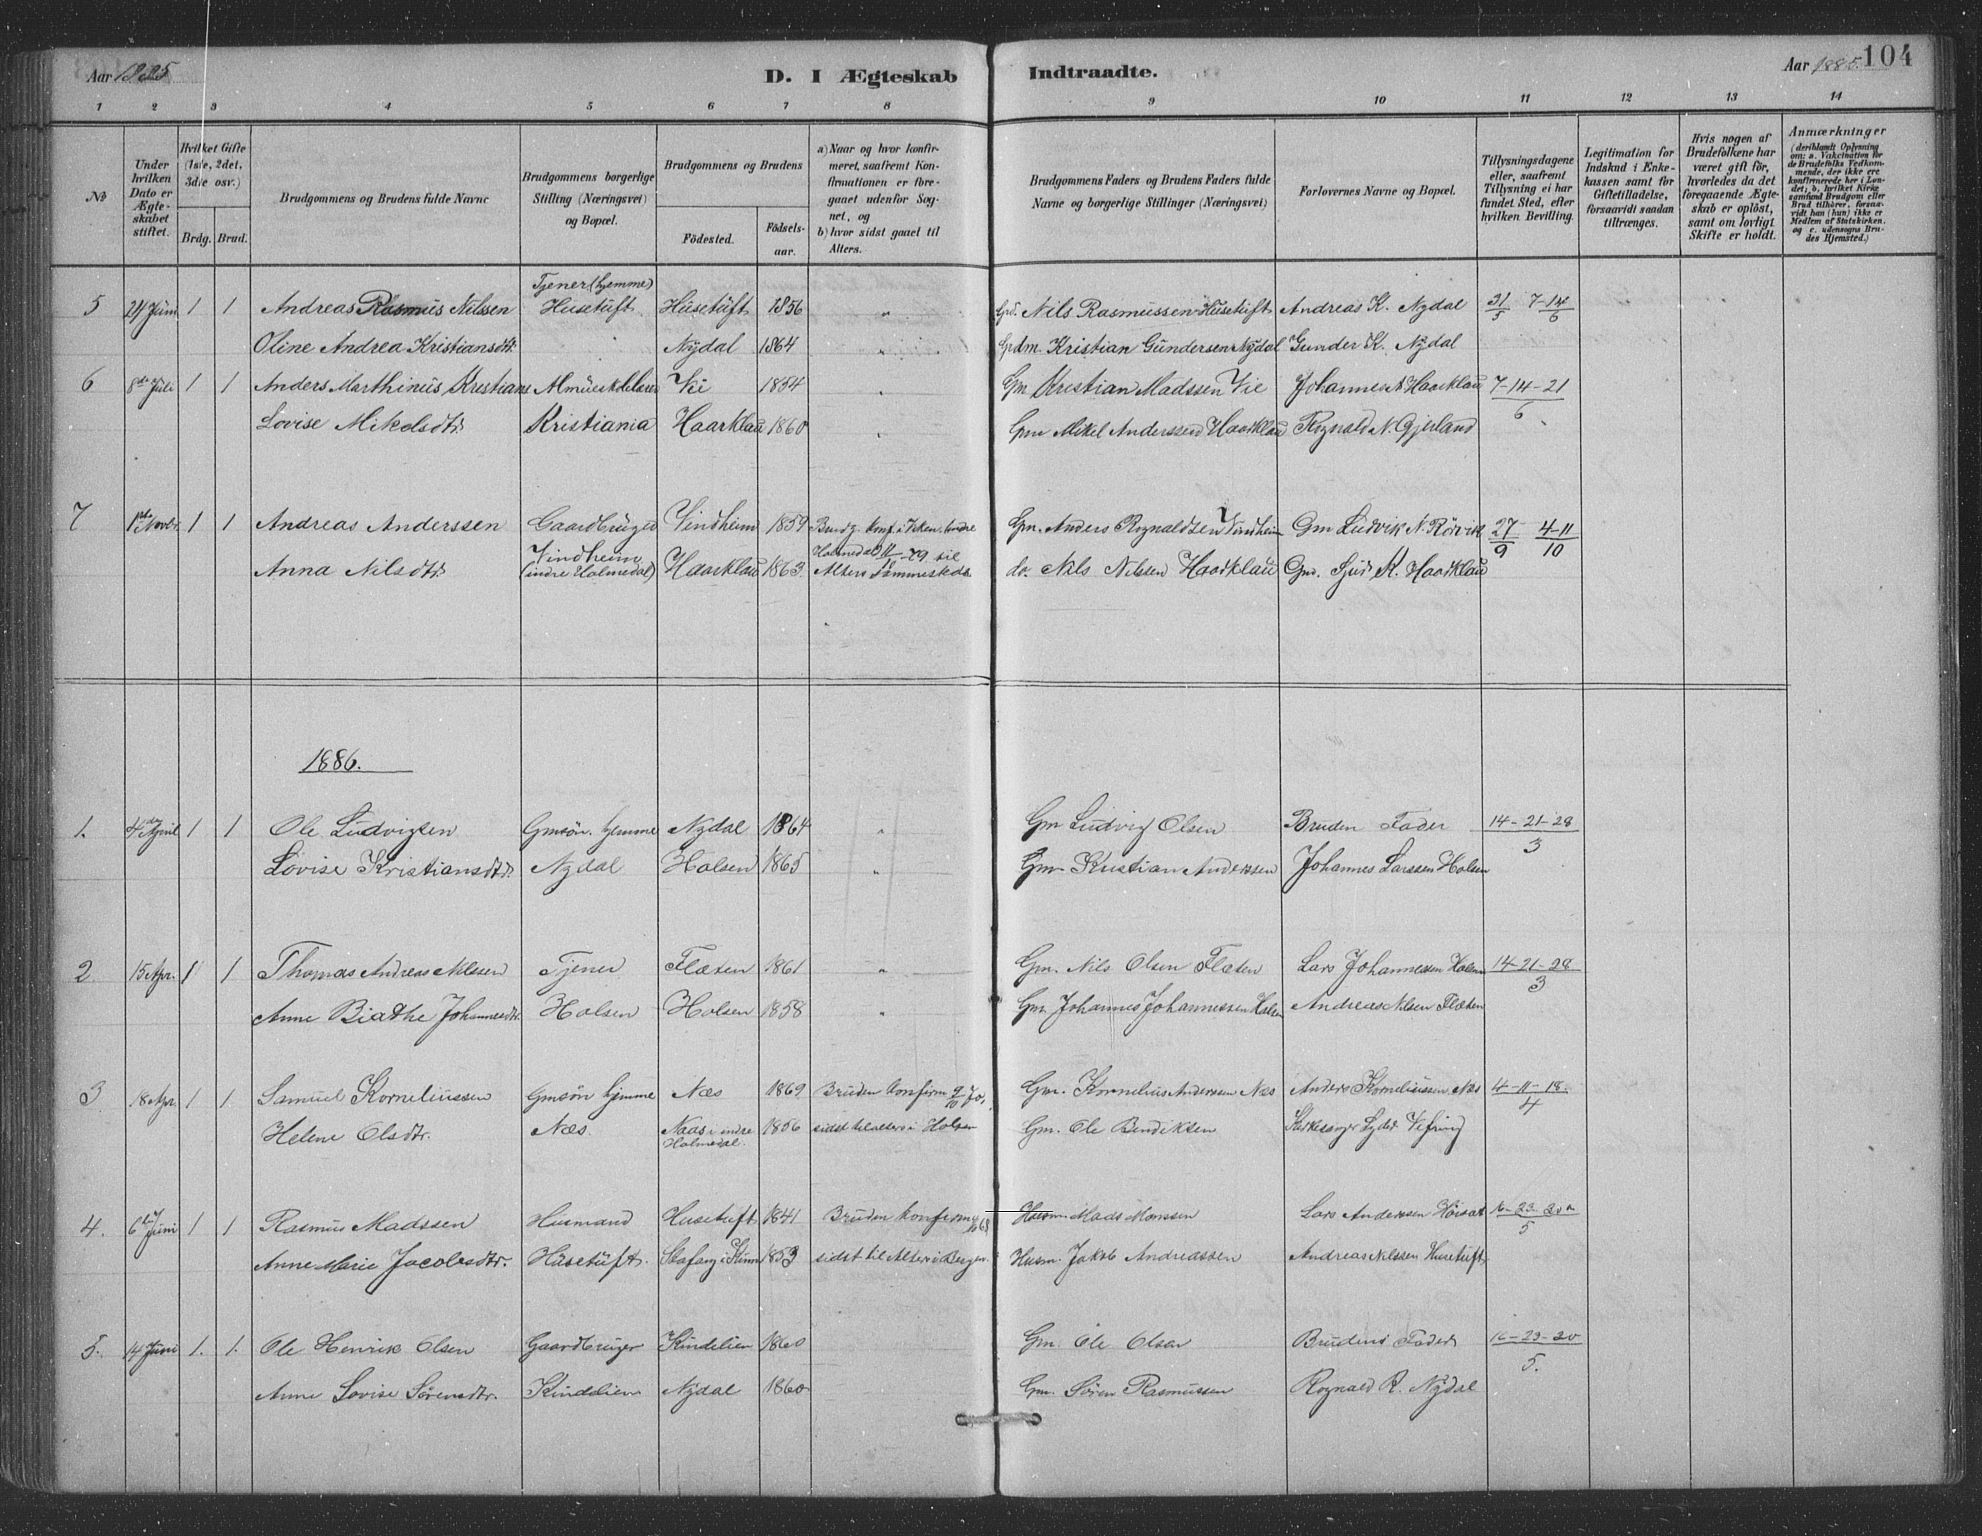 Aar 1885
D. I Ægteskab Indtraadte.
Aar 1885. 104
1 2 3 4 5 6 7 8 9 10 11 12 13 14
No
Under hvilken Dato er Ægteskabet stiftet.
Hvilket Gifte (1ste, 2det, 3die osv.)
Brdg. Brud.
Brudgommens og Brudens fulde Navne
Brudgommens borgerlige Stilling (Næringsvei) og Bopæl.
Brudgommens og Brudens
Födested. Födselsaar.
a) Naar og hvor konfirmeret, saafremt Konfirmationen er foregaaet udenfor Sognet, og
b) hvor sidst gaaet til Alters.
Brudgommens Faders og Brudens Faders fulde Navne og borgerlige Stillinger (Næringsvei)
Forlovernes Navne og Bopæl.
Tillysningsdagene eller, saafremt Tillysning ei har fundet Sted, efter hvilken Bevilling.
Legitimation for Indskud i Enkekassen samt for Giftetilladelse, forsaavidt saadan tiltrænges.
Hvis nogen af Brudefolkene har været gift för, hvorledes da det foregaaende Ægteskab er oplöst, samt om lovligt Skifte er holdt.
Anmærkninger (deriblandt Oplysning om: a. Vakcination for de Brudefolks Vedkommende, der ikke ere konfirmerede her i Landet; b. hvilket Kirkesamfund Brudgom eller Brud tilhörer, forsaavidt han (hun) ikke er Medlem af Statskirken. og c. udensogns Brudes Hjemsted.)
5 24 Juni 1 1 Andreas Rasmus Nilssen Tjener (hjemme) Husetuft Husetuft 1856 " Nils Rasmussen Husetuft Andreas K. Nydal 31/5 7-14/6
Oline Andrea Kristiansdtr. Nydal 1864 " Kristian Gundersen Nydal Gunder K. Nydal
6 8de Juli 1 1 Anders Marthinus Kristians Vie 1854 " Gm Kristian Madssen Vie Johannes A Haarklau 7-14-21/6
Lovise Mikelsdtr. Kristiania Haarklau 1860 " Gm Mikel Anderssen Haarklau Rognald N. Gjerland
7 1ste Novbr. 1 1 Andreas Anderssen Gaardbruger Vindheim 1859 Brudg. konf. i Indre Gm. Anders Rognaldsen Vindheim Gm Ludvik N. Rörvik 27/9 4-11/10
Anna Nilsdtr. Vindheim (indre Holmedal) Haarklau 1863 Holmedal til Alters sammesteds. do. Nils Nilssen Haarklau Gm. Sjur K. Haarklau
1886.
1. 4de April 1 1 Ole Ludvigsen Gmsön. hjemme Nydal 1864 " Gm Ludvig Olsen Bruden Fader 14-21-28/3
Lovise Kristiansdtr. Nydal Holsen 1865 " Gm Kristian Anderssen Johannes Larssen Holsen
2 15 Apr. 1 1 Thomas Andreas Nilssen Tjener Flæten 1861 " Gm. Nils Olsen Flæten Lars Johannessen Holsen 14-21-28/3
Anne Birthe Johannesdtr. Holsen Holsen 1858 " Gm. Johannes Johannessen Holsen Andreas Nilsen Flæten
3 18 Apr. 1 1 Samuel Korneliussen Gmsön hjemme Næs 1869 Bruden konfirm 9/10 70, Gm. Kornelius Anderssen Næs Anders Korneliussen Næs 4-11-18./4
Helene Olsdtr. Næs. Naas i indre Holmedal. 1856 sidst til alters i Holsen Gm. Ole Bendiksen Kirkesanger Lyder Vefring
4. 6te Juni 1 1 Rasmus Madssen Husmand Husetuft 1841 Bruden konfirm Husm. Mads Monssen Lars Anderssen 16-23-30/5
Anne Marie Jacobsdtr. Husetuft. i Kinn 1853 sidst til Alters i Bergen. Husm. Jakob Andreassen Andreas Nilssen Husetuft
5. 14 Juni 1. 1. Ole Henrik Olsen Gaardbruger Kindelien 1860 Gm. Ole Olsen Brudens Fader 16-23-30/5.
Anne Lovise Sörensdtr. Kindelien Nydal 1860 Gm. Sören Rasmussen Rognald R. Nydal